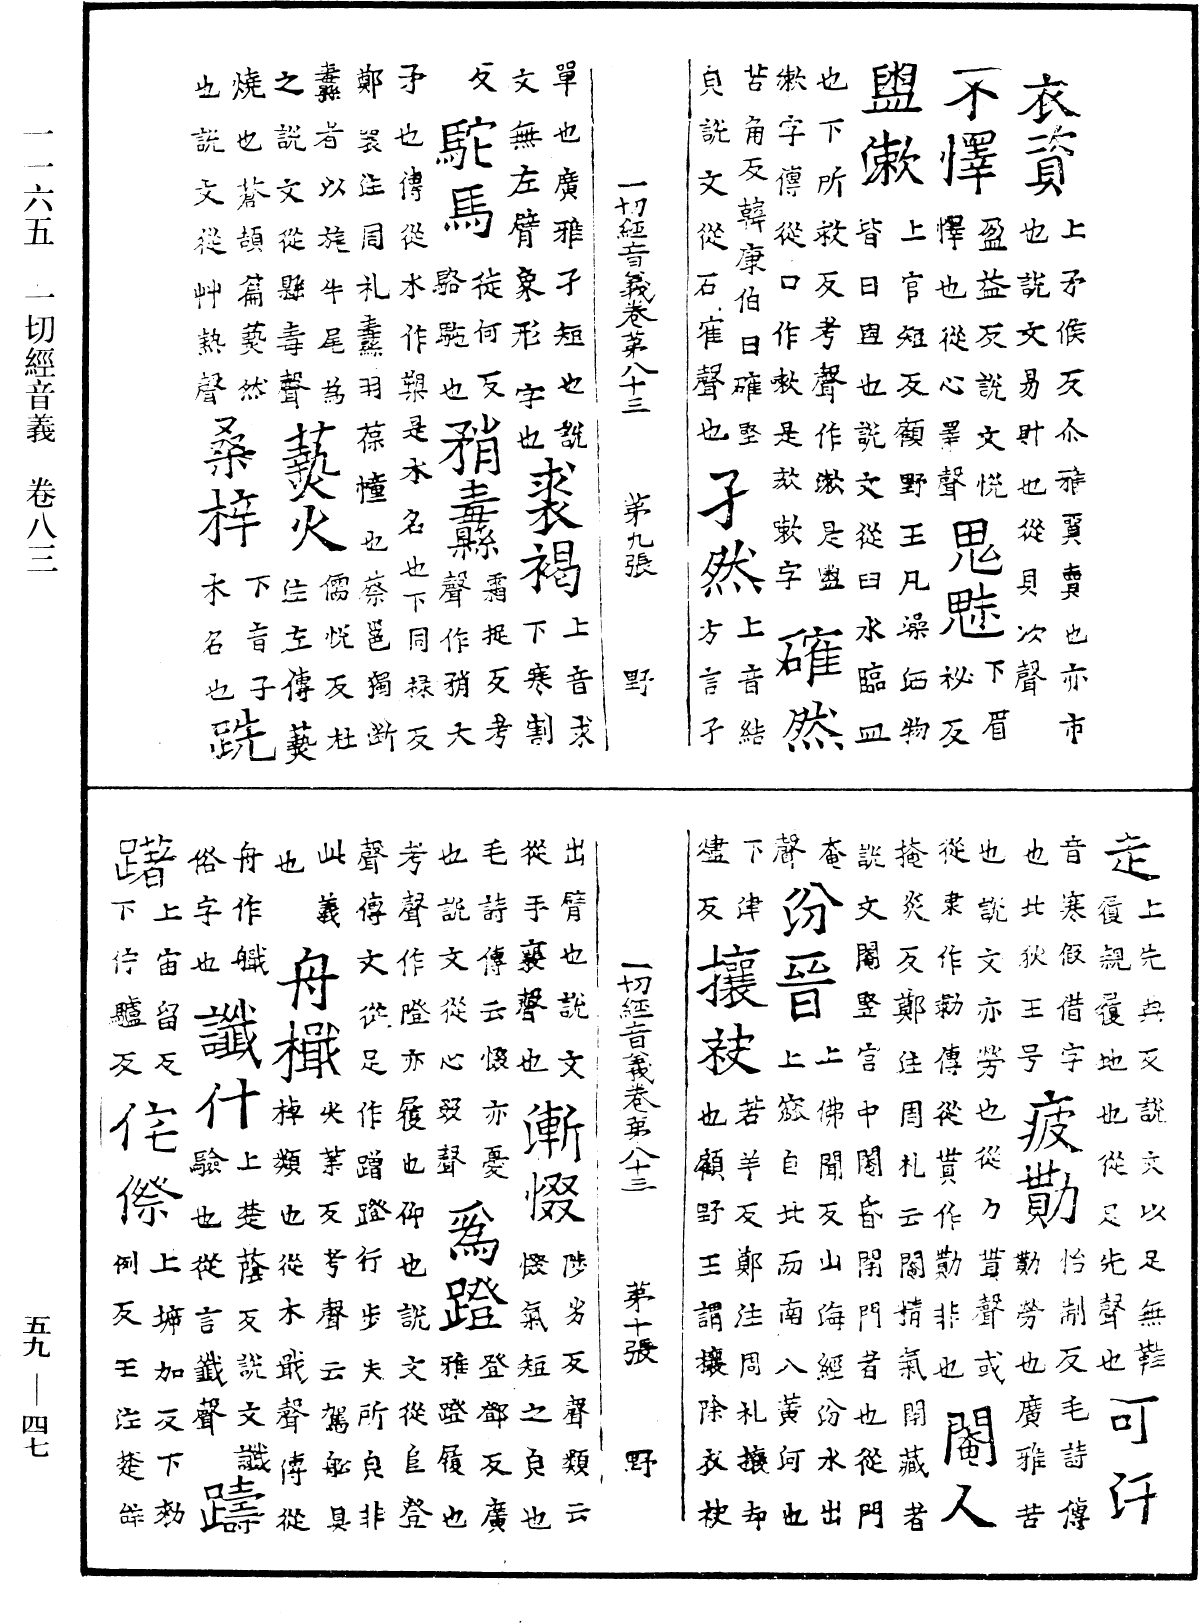 一一六五　一切經音義　卷八三
五九—四七
衣資
上矛候反尒雅貿賣也亦市
也說文易財也從貝次聲
不懌
盈益反說文悅
懌也從心睪聲
鬼魅
下眉
祕反
盥漱
上官短反顧野王凡澡洒物
皆曰盥也說文從臼水臨皿
也下所救反考聲作漱是盥
漱字傳從口作嗽是欬嗽字
確然
苦角反韓康伯曰確堅
皃說文從石隺聲也
孑然
上音結
方言孑
一切經音義卷第八十三　第九張　野
單也廣雅孑短也說
文無左臂象形字也
裘褐
上音求
下寒割
反
駝馬
徒何反
駱駞也
矟纛
霜捉反考
聲作矟大
矛也傳從木作槊是木名也下同祿反
鄭衆注周礼纛羽葆幢也蔡邕獨斷
纛者以旄牛尾為之說文從縣毒聲
爇火
儒悅反杜
注左傳爇
燒也蒼頡篇爇然
也說文從艸熱聲
桑梓
下音子
木名也
跣
走
上先典反說文以足無鞋
履親履地也從足先聲也
可汗
音寒假借字
也北狄王号
疲勩
怡制反毛詩傳
勩勞也廣雅苦
也說文亦勞也從力貰聲或
從隶作勩傳從貰作勩非也
閹人
掩炎反鄭注周礼云閹精氣閉藏者
說文閹竪宮中閹昏閉門者也從門
奄聲
汾晉
上佛聞反山海經汾水出
上窊自北而南入黃河也
下津
燼反
攘袂
上若羊反鄭注周礼攘却
也顧野王謂攘除衣袂
一切經音義卷第八十三　第十張　野
出臂也說文
從手襄聲也
慚惙
陟劣反聲類云
惙氣短之皃也
毛詩傳云惙亦憂
也說文從心叕聲
為蹬
登鄧反廣
雅蹬履也
考聲作隥亦履也仰也說文從𨸏登
聲傳文從足作蹭蹬行步失所皃非
此義
也
舟檝
尖葉反考聲云駕舩具
棹類也從木戢聲傳從
舟作艥
俗字也
讖什
上楚蔭反說文讖
驗也從言韱聲
躊躇
上宙留反
下佇驢反
侘傺
上㙤加反下勑
例反王注楚辞